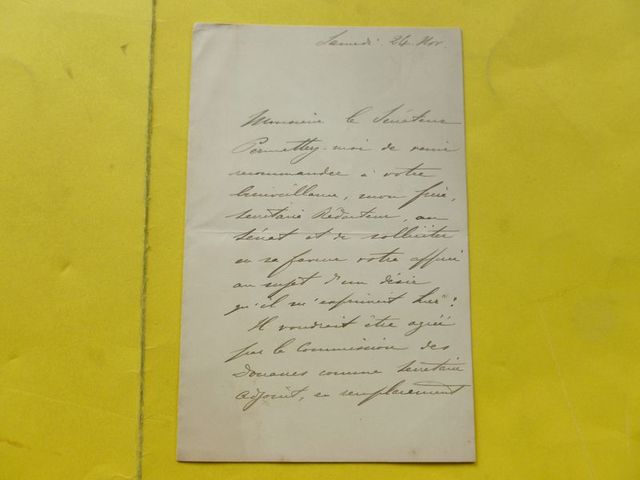 Samedi 24 Nov.
Monsieur le Sénateur
Permettez-moi de venir
recommander à votre
bienveillance, mon frère,
secrétaire Rédacteur, au
Sénat et de solliciter
en sa faveur votre appui
au sujet d'un désir
qu'il m'exprimait hier :
Il voudrait être agréé
par la Commission des
Douanes comme secrétaire
adjoint, en remplacement